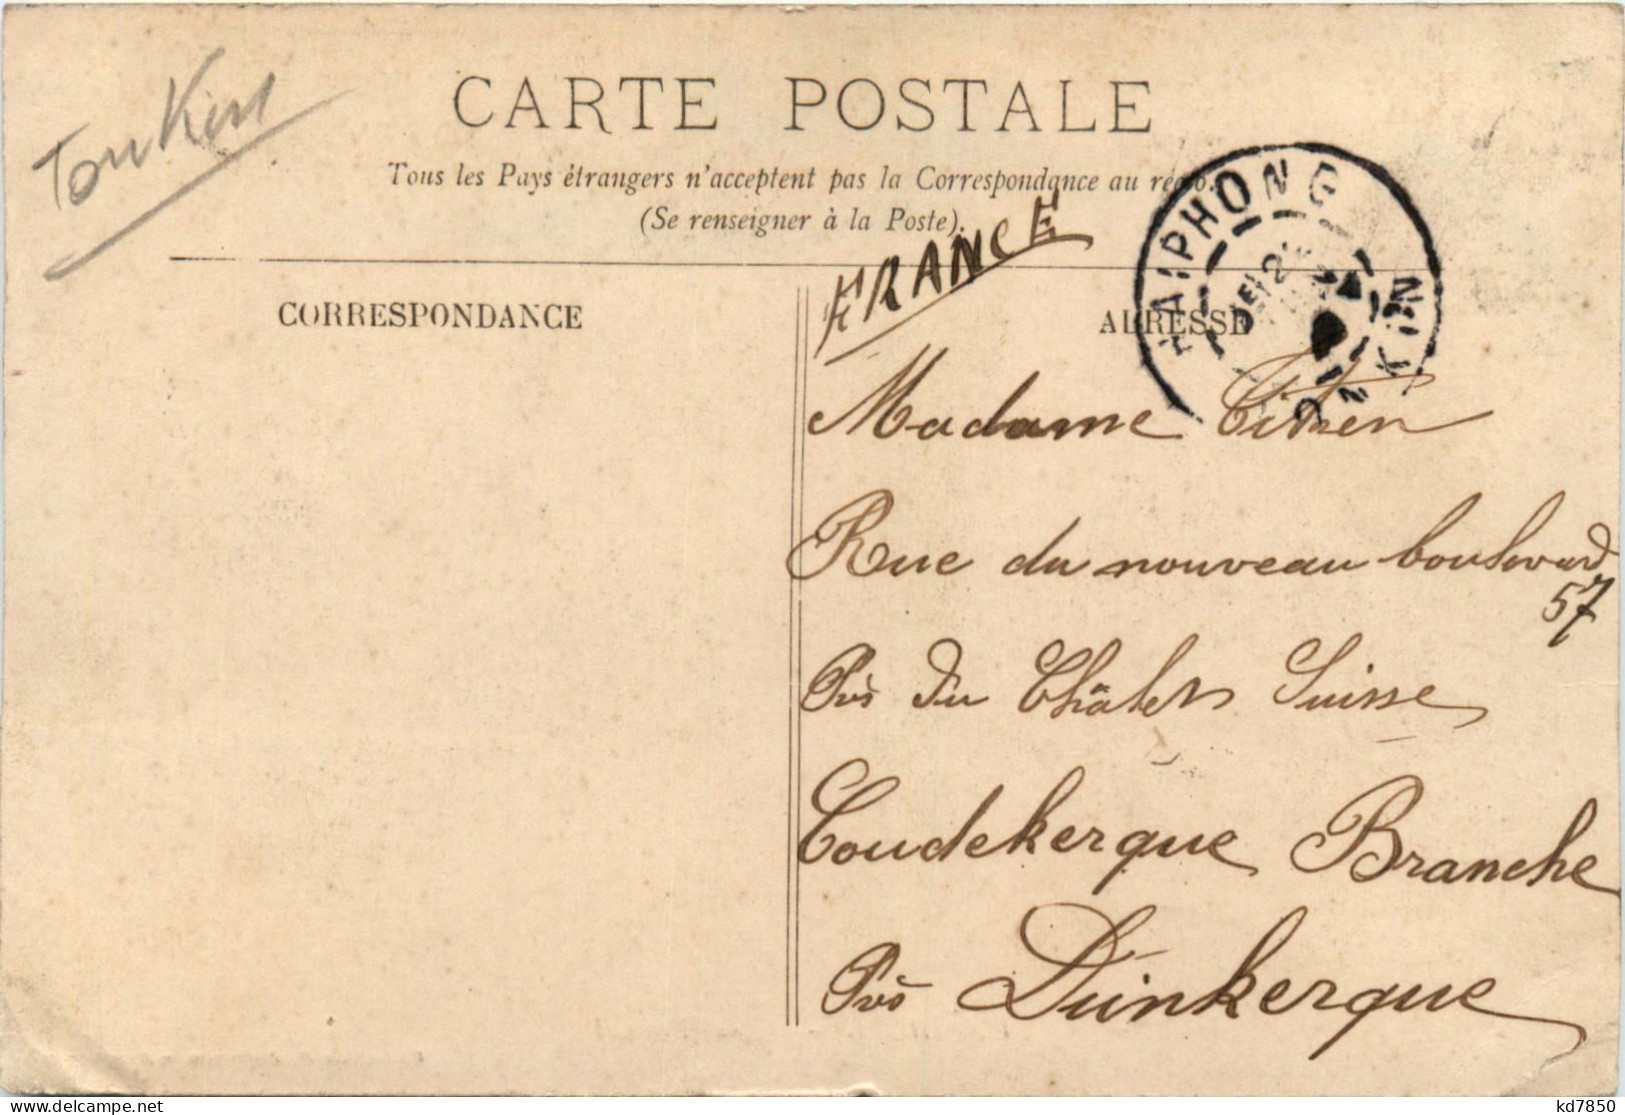 Tonkin
CARTE POSTALE
Tous les Pays étrangers n'acceptent pas la Correspondance au recto.
(Se renseigner à la Poste).
FRANCE
HAIPHONG
TONKIN
CORRESPONDANCE
ADRESSE
Madame
Rue du nouveau boulevard
57
Près du Châlet Suisse
Coudekerque Branche
Près Dunkerque
kd7850